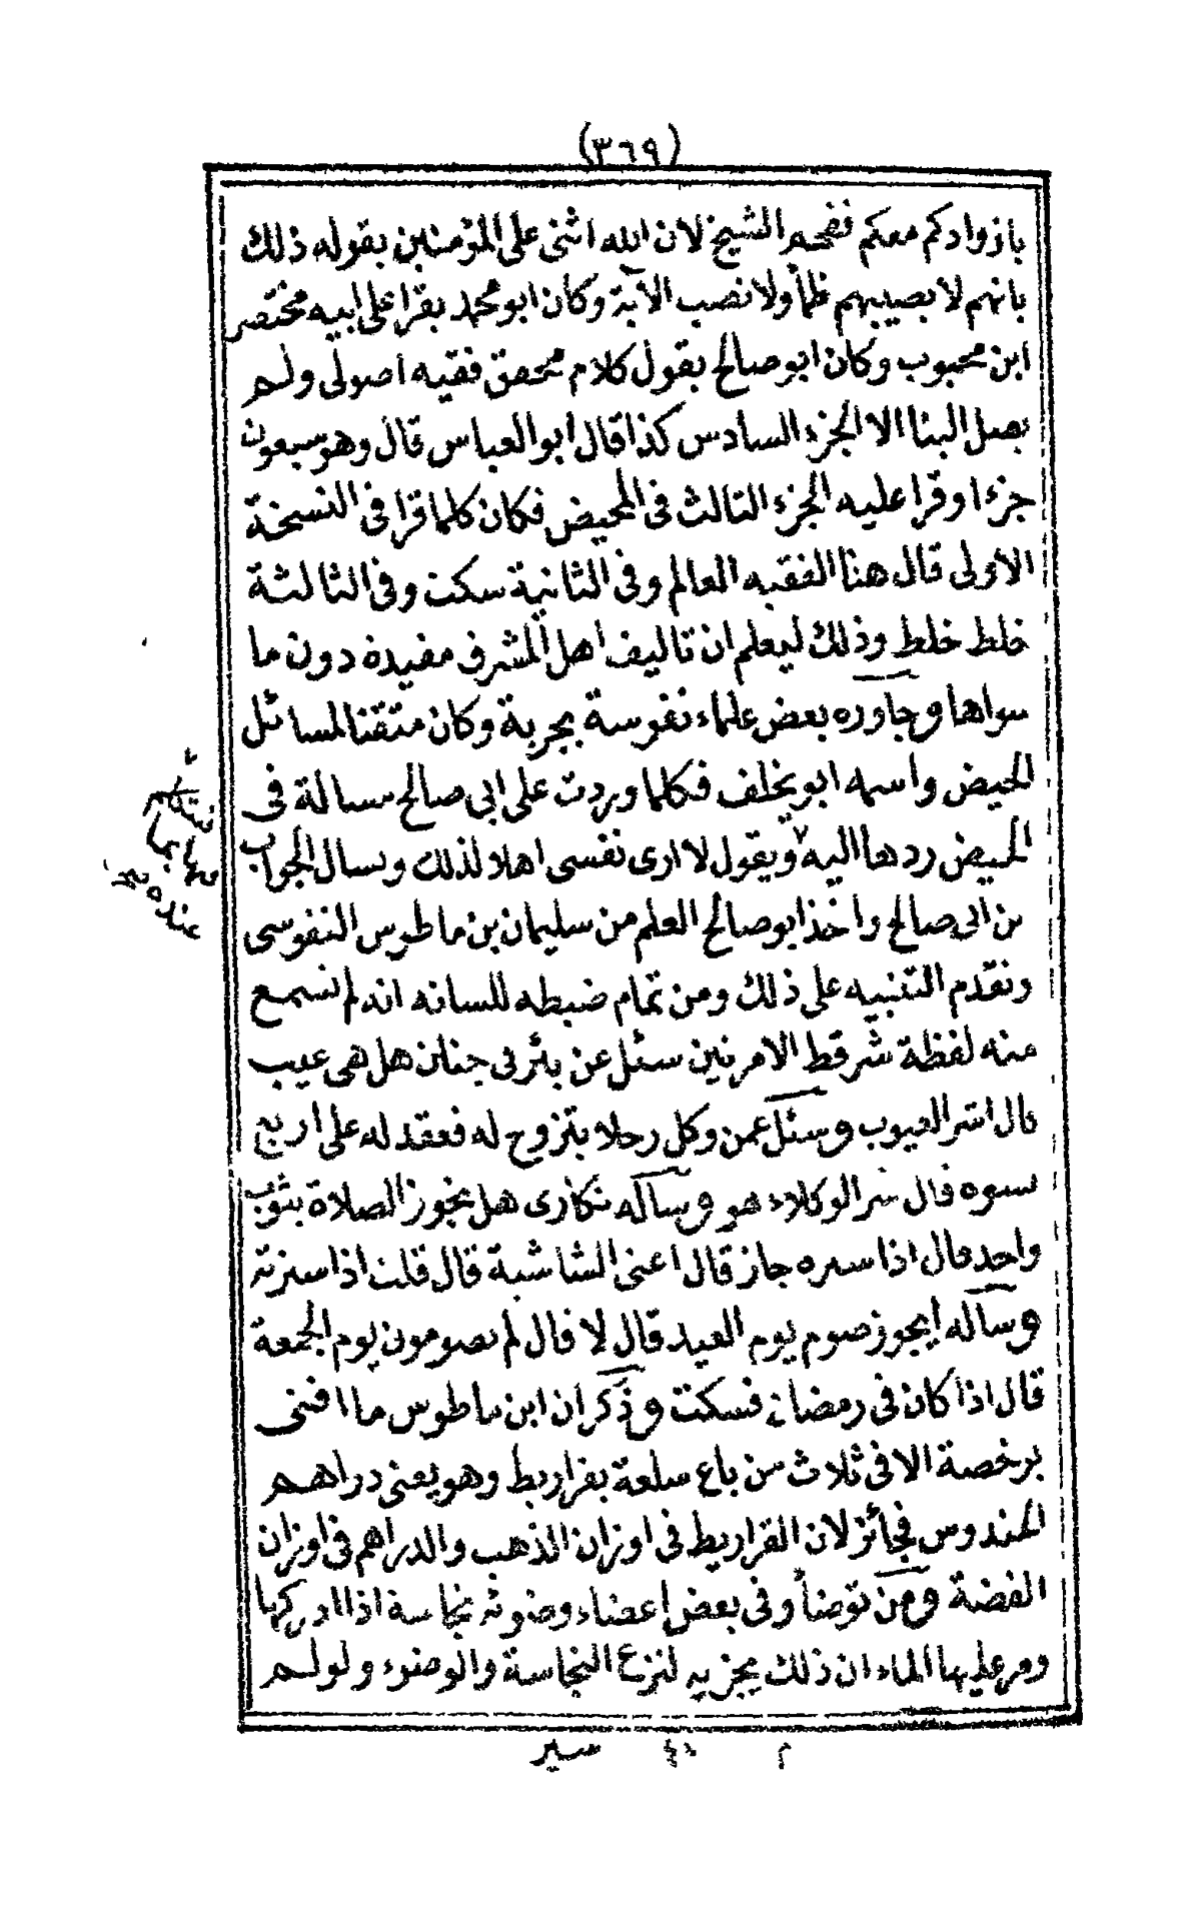 (٣٦٩)
بازوادكم معكم ففحم الشيخ لان الله اثنى على المؤمنين بقوله ذلك
بانهم لا يصيبهم ظمأ ولا نصب الآية وكان ابو محمد يقرا على ابيه مختصر
ابن محبوب وكان ابو صالح يقول كلام محقق فقيه اصولى ولم
يصل الينا الا الجزء السادس كذا قال ابو العباس قال وهو سبعون
جزءا وقرا عليه الجزء الثالث فى المحيض فكان كلما قرا فى النسخة
الاولى قال هنا الفقيه العالم وفى الثانية سكت وفى الثالثة
خلط خلط وذلك ليعلم ان تاليف اهل المشرق مفيدة دون ما
سواها وجاوره بعض علماء نفوسة بجربة وكان متقنا لمسائل
الحيض واسمه ابو يخلف فكلما وردت على ابى صالح مسالة فى
الحيض ردها اليه ويقول لا ارى نفسى اهلا لذلك ويسال الجواب
من ابى صالح واخذ ابو صالح العلم من سليمان بن ماطوس النفوسى
وتقدم التنبيه على ذلك ومن تمام ضبطه للسانه انه لم تسمع
منه لفظة شر قط الا مرتين سئل عن بئر فى جنان هل هى عيب
قال اشر العيوب وسئل عمن وكل رجلا يتزوج له فعقد له على اربع
نسوة قال شر الوكلاء هو وساله نكارى هل يجوز الصلاة بثوب
واحد قال اذا ستره جاز قال اعنى الشاشية قال قلت اذا سترته
وساله ايجوز صوم يوم العيد قال لا قال لم تصومون يوم الجمعة
قال اذا كان فى رمضان فسكت وذكر ان ابن ماطوس ما افتى
برخصة الا فى ثلاث من باع سلعة بقراريط وهو يعنى دراهم
الحندوس فجائز لان القراريط فى اوزان الذهب والدراهم فى اوزان
الفضة ومن توضأ وفى بعض اعضاء وضوئه نجاسة اذا ادركها
ومر عليها الماء ان ذلك يجزيه لنزع النجاسة والوضوء ولو لم
فيتكلم
فيها بما
عنده
م ٤٧ سير